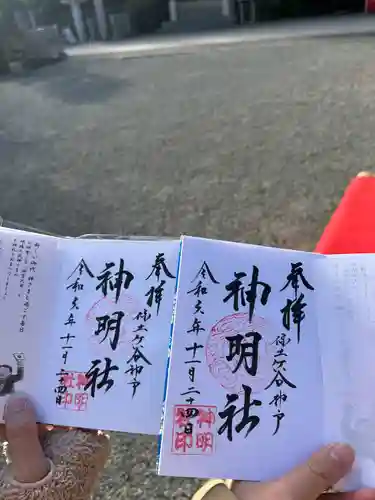 奉拝
保土ケ谷神戸
神明社
令和六年十一月二十四日
神明社印
奉拝
保土ケ谷神戸
神明社
令和六年十一月二十四日
神明社印